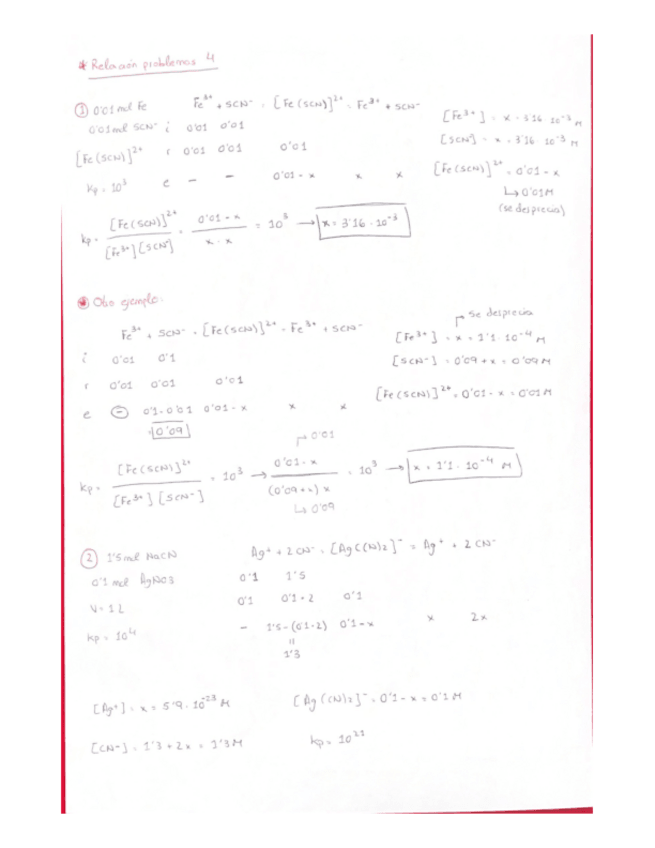 * Relación problemas 4
① 0'01 mol Fe Fe³⁺ + SCN⁻ = [Fe(SCN)]²⁺ = Fe³⁺ + SCN⁻
0'01 mol SCN⁻ i 0'01 0'01
[Fe(SCN)]²⁺ r 0'01 0'01 0'01
kp = 10³ e - - 0'01 - x x x
[Fe³⁺] = x = 3'16 · 10⁻³ M
[SCN⁻] = x = 3'16 · 10⁻³ M
[Fe(SCN)]²⁺ = 0'01 - x
↳ 0'01 M
(se desprecia)
kp = [Fe(SCN)]²⁺ / [Fe³⁺][SCN⁻] = 0'01 - x / x · x = 10³ → x = 3'16 · 10⁻³
* Otro ejemplo:
Fe³⁺ + SCN⁻ = [Fe(SCN)]²⁺ = Fe³⁺ + SCN⁻
i 0'01 0'1
r 0'01 0'01 0'01
e - 0'1 - 0'01 0'01 - x x x
= 0'09
se desprecia
[Fe³⁺] = x = 1'1 · 10⁻⁴ M
[SCN⁻] = 0'09 + x = 0'09 M
[Fe(SCN)]²⁺ = 0'01 - x = 0'01 M
0'01
kp = [Fe(SCN)]²⁺ / [Fe³⁺][SCN⁻] = 10³ → 0'01 - x / (0'09 + x) x = 10³ → x = 1'1 · 10⁻⁴ M
↳ 0'09
② 1'5 mol NaCN Ag⁺ + 2 CN⁻ = [Ag(CN)₂]⁻ = Ag⁺ + 2 CN⁻
0'1 mol AgNO₃ 0'1 1'5
V = 1 L 0'1 0'1 · 2 0'1
kp = 10²¹ - 1'5 - (0'1 · 2) 0'1 - x x 2x
=
1'3
[Ag⁺] = x = 5'9 · 10⁻²³ M [Ag(CN)₂]⁻ = 0'1 - x = 0'1 M
[CN⁻] = 1'3 + 2x = 1'3 M kp = 10²¹